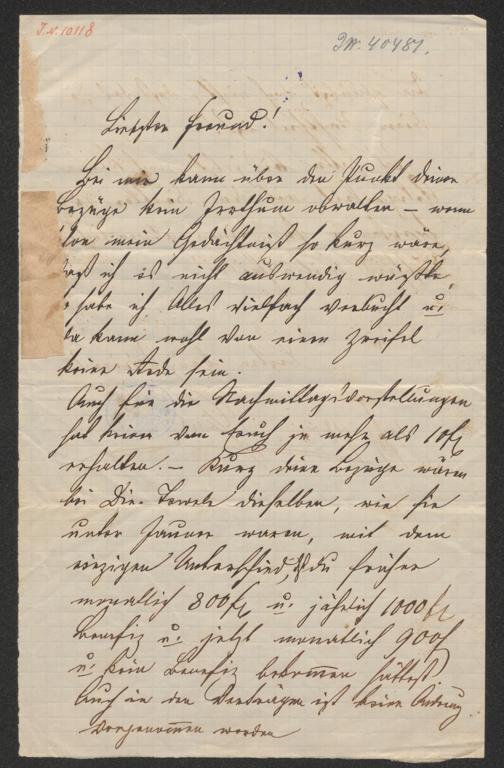 J.N. 10118
JN. 40481.
Liebster Freund!
Bei mir kann über den Punkt deiner
Bezüge kein Irrthum obwalten – wenn
mein Gedächtniß so kurz wäre,
daß ich es nicht auswendig wüßte,
habe ich Alles vielfach verbucht u.
da kann wohl von einem Zweifel
keine Rede sein.
Auch für die Nachmittagsvorstellungen
hat keiner von Euch je mehr als 10 fl
erhalten. – Kurz deine Bezüge wären
bei Dir. Tewele dieselben, wie sie
unter Jauner waren, mit dem
einzigen Unterschied, du früher
monatlich 800 fl u. jährlich 1000 fl
Benefiz u. jetzt monatlich 900 fl
u. kein Benefiz bekommen hättest.
Auch in den Verträgen ist keine Änderung
vorgenommen worden